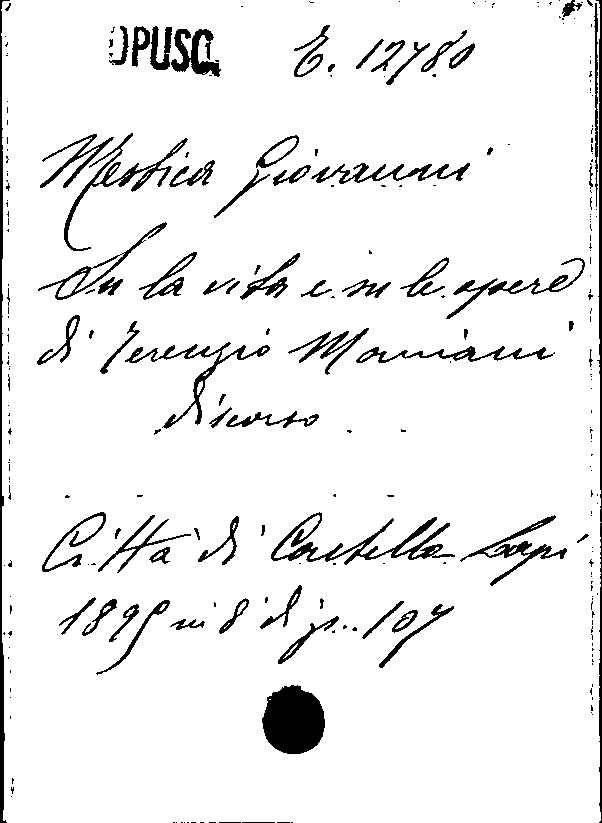 OPUSC. E. 12780
Mestica Giovanni
Su la vita e su le opere
di Terenzio Mamiani
discorso
Città di Castello Lapi
1895 in 8° di p. 107